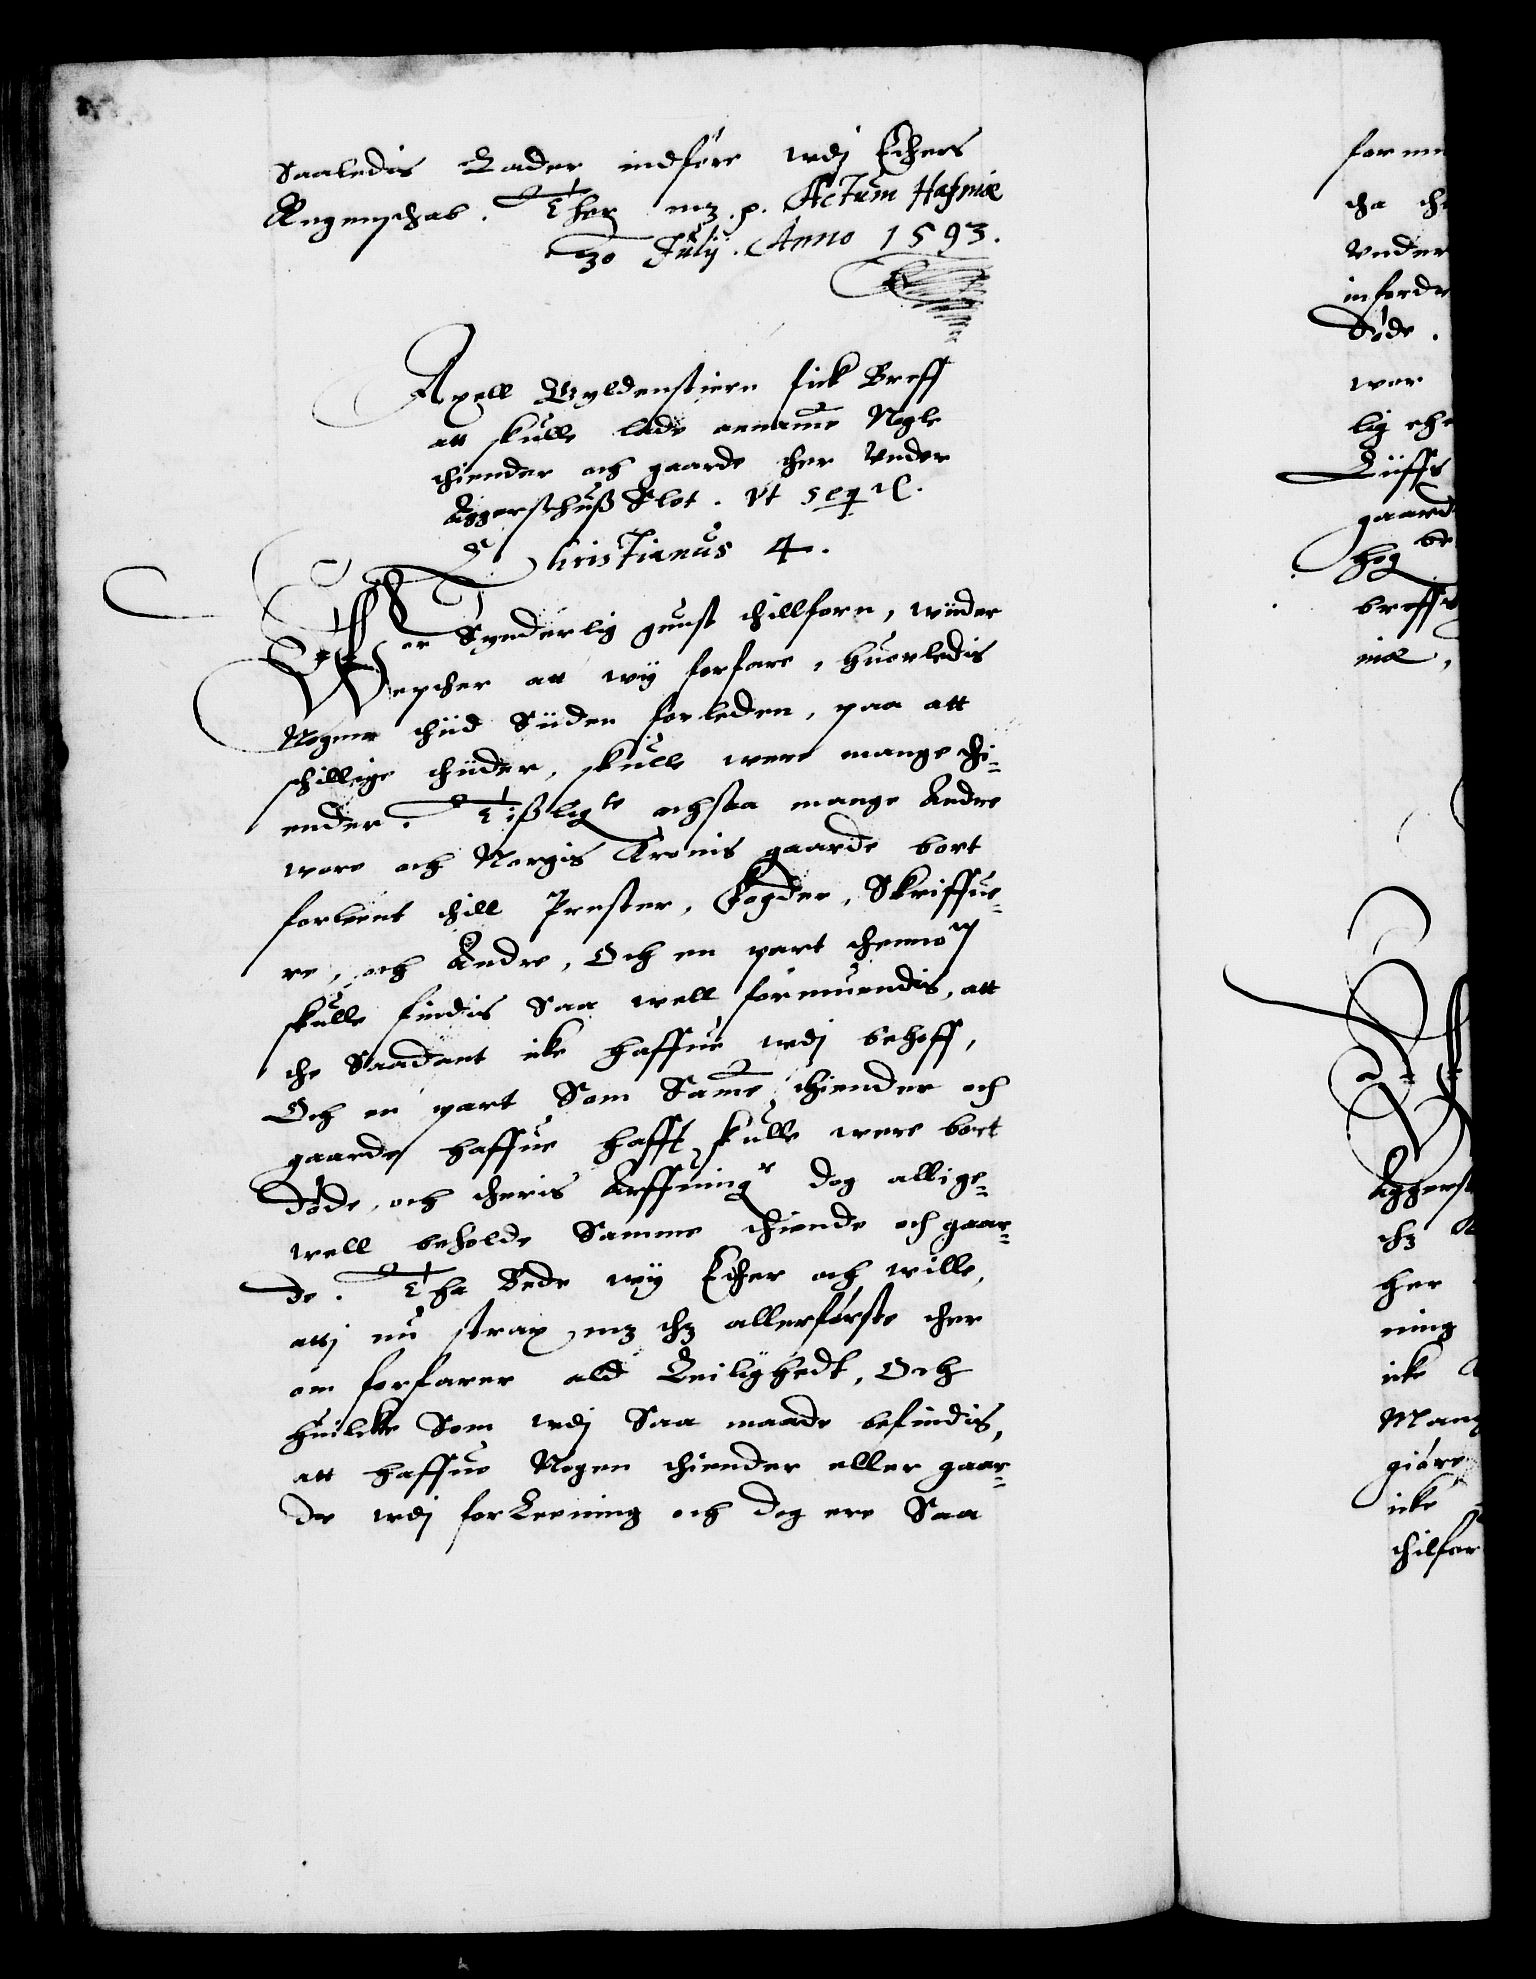 Saaledis Lader indføre wdj Ethers
Regenschab. Ther mz. p. Actum Hafniæ
30 Julij. Anno 1593.
Axell Gyldenstiern fick Breff
att skulle lade anamme Nogle
thiender och gaarde ther Vnder
Aggershuß Slot. Vt seq
Christianus 4.
Wor Synderlig gunst thillforn, wiider
Wepther att wij forfare, huorledis
Nogenn thiid Siiden forleden, paa att
schillige thiider, skulle were mange thi-
ender. Tißligte ochsaa mange Andre
wore och Norgis Kronis gaarde bort
forlent thill Prester, Fogder, Skriffue-
re, och Andre, Och en part thennom
skulle findis Saa well formuendis, att
the Saadant icke haffue wdj behoff,
Och en part Som Samme thiender och
gaarde haffue hafft skulle were bort
døde, och theris Arffuinger dog allige-
well beholde Samme thiende och gaar-
de. Tha Bede wij Ether och wille,
attj nu strax, mz thz allerførste ther
om forfarer ald Leilighedt, Och
huilcke Som wdj Saa maade befindis,
att haffue Nogen thiender eller gaar-
de wdj forLening och dog ere Saa
for mu
tha th
Vnder
inforde
døde.
wor
lig eth
Liiffs
gaard
hog be
breffu
niæ,
Aggers
thz
her
ning
icke
Mang
giøre
icke
thilfor